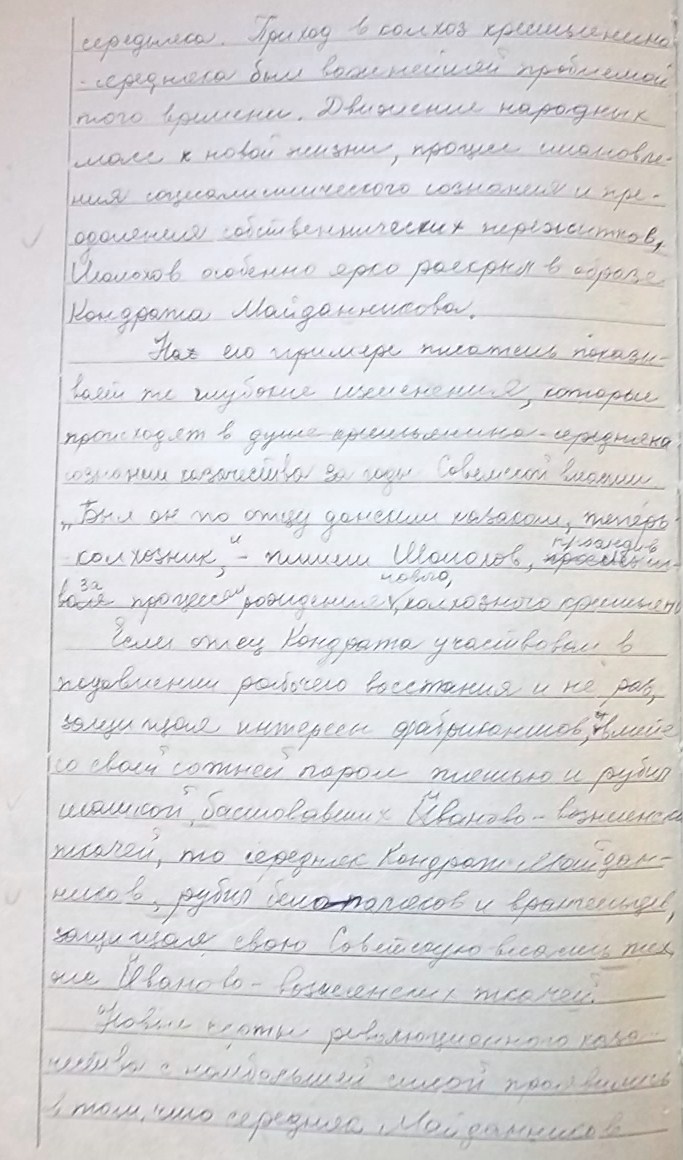 середняка. Приход в колхоз крестьянина
- середняка был важнейшей проблемой
того времени. Движение народных
масс к новой жизни, процесс становле-
ния социалистического сознания и пре-
одоления собственнических пережитков,
Шолохов особенно ярко раскрыл в образе
Кондрата Майданникова.
На его примере писатель показы-
вает те глубокие изменения, которые
происходят в душе крестьянина-середняка
сознании казачества за годы Советской власти
„Был он по отцу донским казаком, теперь-
колхозник," - пишет Шолохов,
за процессом рождения нового, колхозного
Если отец Кондрата участвовал в
подавлении рабочего восстания и не раз,
защищая интересы фабрикантов, вместе
со своей сотней порол плетью и рубил
шашкой бастовавших Иваново-вознесенских
ткачей, то середняк Кондрат Майдан-
ников, рубил белополяков и врангельцев,
защищая свою Советскую власть, тех
же Иваново-вознесенских ткачей.
Новые черты революционного каза-
чества с наибольшей силой проявились
в том, что середняк Майданников